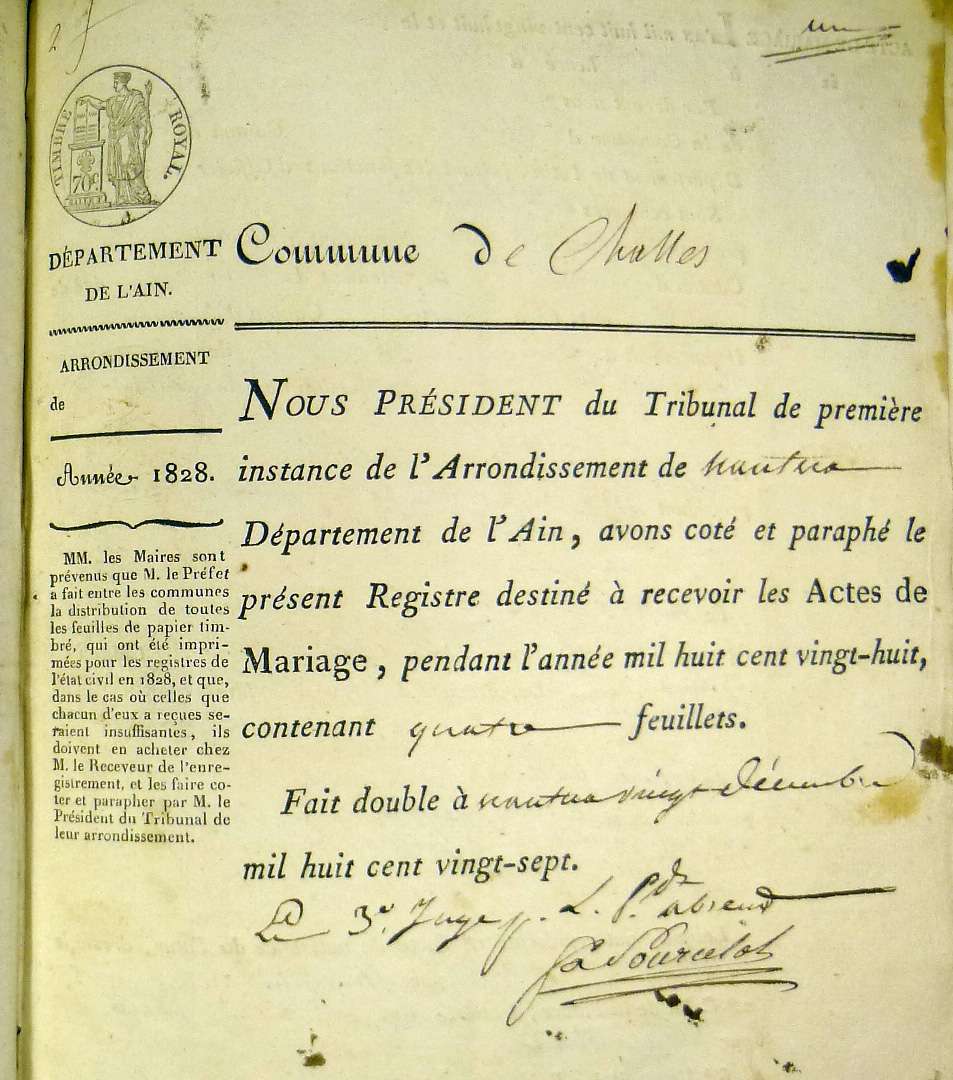 2
une
TIMBRE ROYAL.
70c
DÉPARTEMENT
DE L'AIN.
Commune De Challes
ARRONDISSEMENT
de
Année 1828.
MM. les Maires sont
prévenus que M. le Préfet
a fait entre les communes
la distribution de toutes
les feuilles de papier tim-
bré, qui ont été impri-
mées pour les registres de
l'état civil en 1828, et que,
dans le cas où celles que
chacun d'eux a reçues se-
raient insuffisantes, ils
doivent en acheter chez
M. le Receveur de l'enre-
gistrement, et les faire co-
ter et parapher par M. le
Président du Tribunal de
leur arrondissement.
NOUS PRÉSIDENT du Tribunal de première
instance de l'Arrondissement de nantua
Département de l'Ain, avons coté et paraphé le
présent Registre destiné à recevoir les Actes de
Mariage, pendant l'année mil huit cent vingt-huit,
contenant quatre feuillets.
Fait double à nantua vingt décembre
mil huit cent vingt-sept.
Le 3e. Juge p. L. P.dt absent